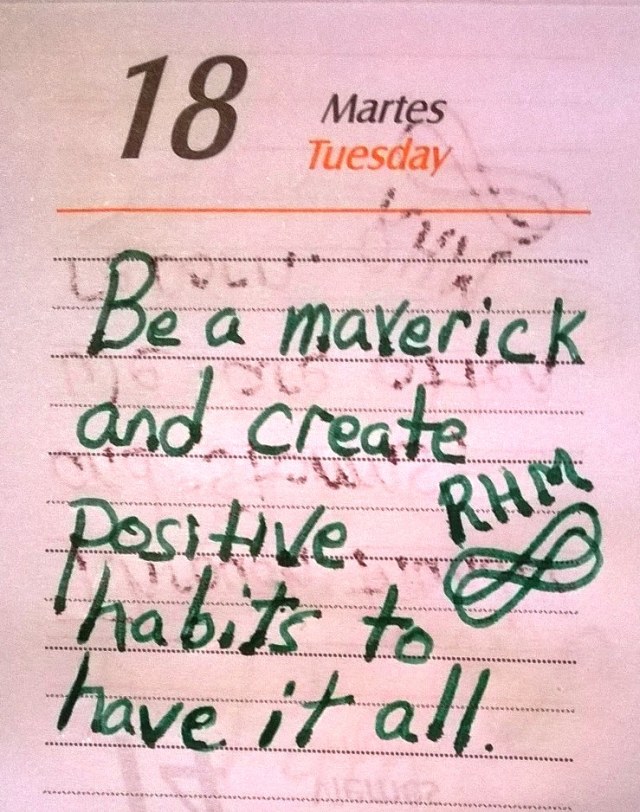 18
Martes
Tuesday
Be a maverick
and create
RHM
positive
habits to
have it all.